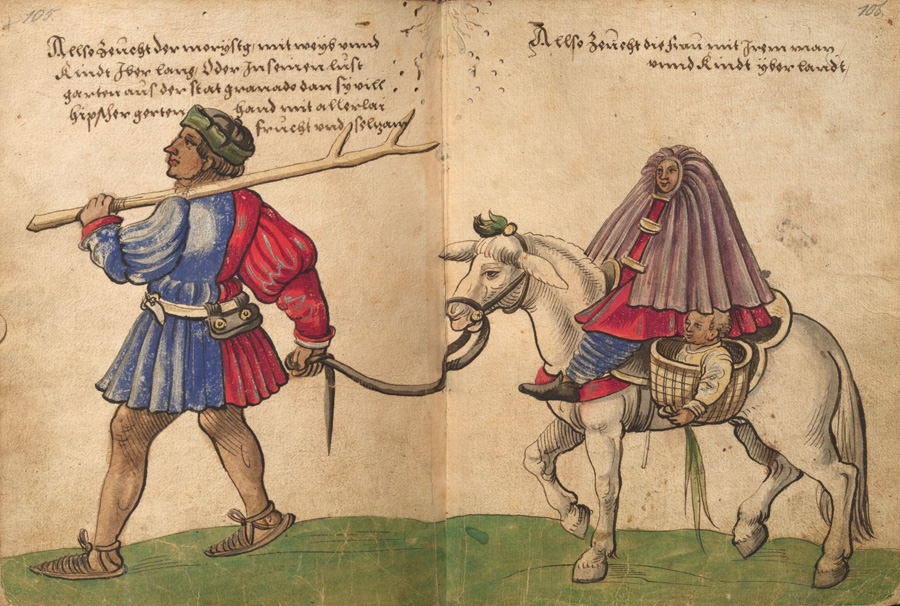 105.
Allso Zeucht der morystg / mit weyb vnnd
Kindt Jver lang / Oder Jn seinen lust
garten aus der stat granado dan sy vill
hipscher gerten hand mit allerlai
frucht vnd selzam
106.
Allso Zeucht die frau mit Jrem man
vnnd Kindt yber landt /